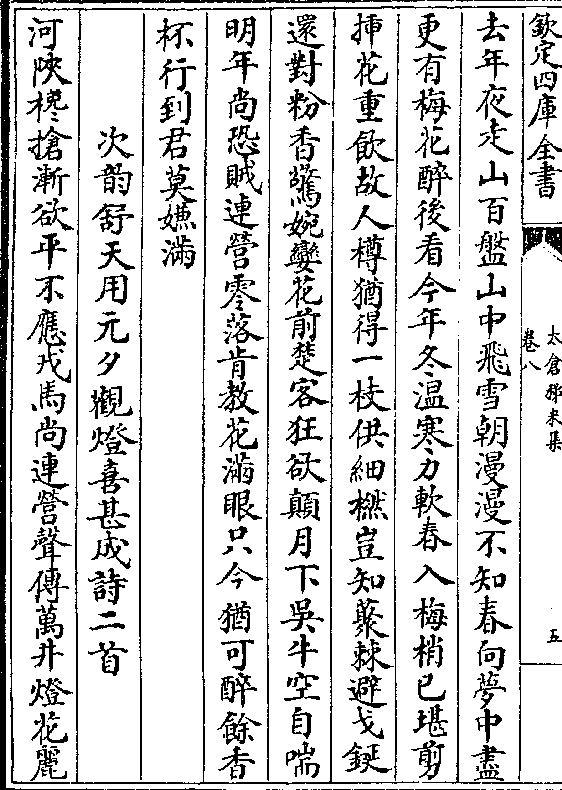 欽定四庫全書
太倉稊米集
卷八
五
去年夜走山百盤山中飛雪朝漫漫不知春向夢中盡
更有梅花醉後看今年冬溫寒力軟春入梅梢已堪剪
揷花重飲故人樽猶得一枝供細撚豈知藂棘避戈鋋
還對粉香驚婉孌花前楚客狂欲顛月下吳牛空自喘
明年尚恐賊連營零落肯教花滿眼只今猶可醉餘香
杯行到君莫嫌滿
次韵舒天用元夕觀燈喜甚成詩二首
河陝欃搶漸欲平不應戎馬尚連營聲傳萬井燈花麗